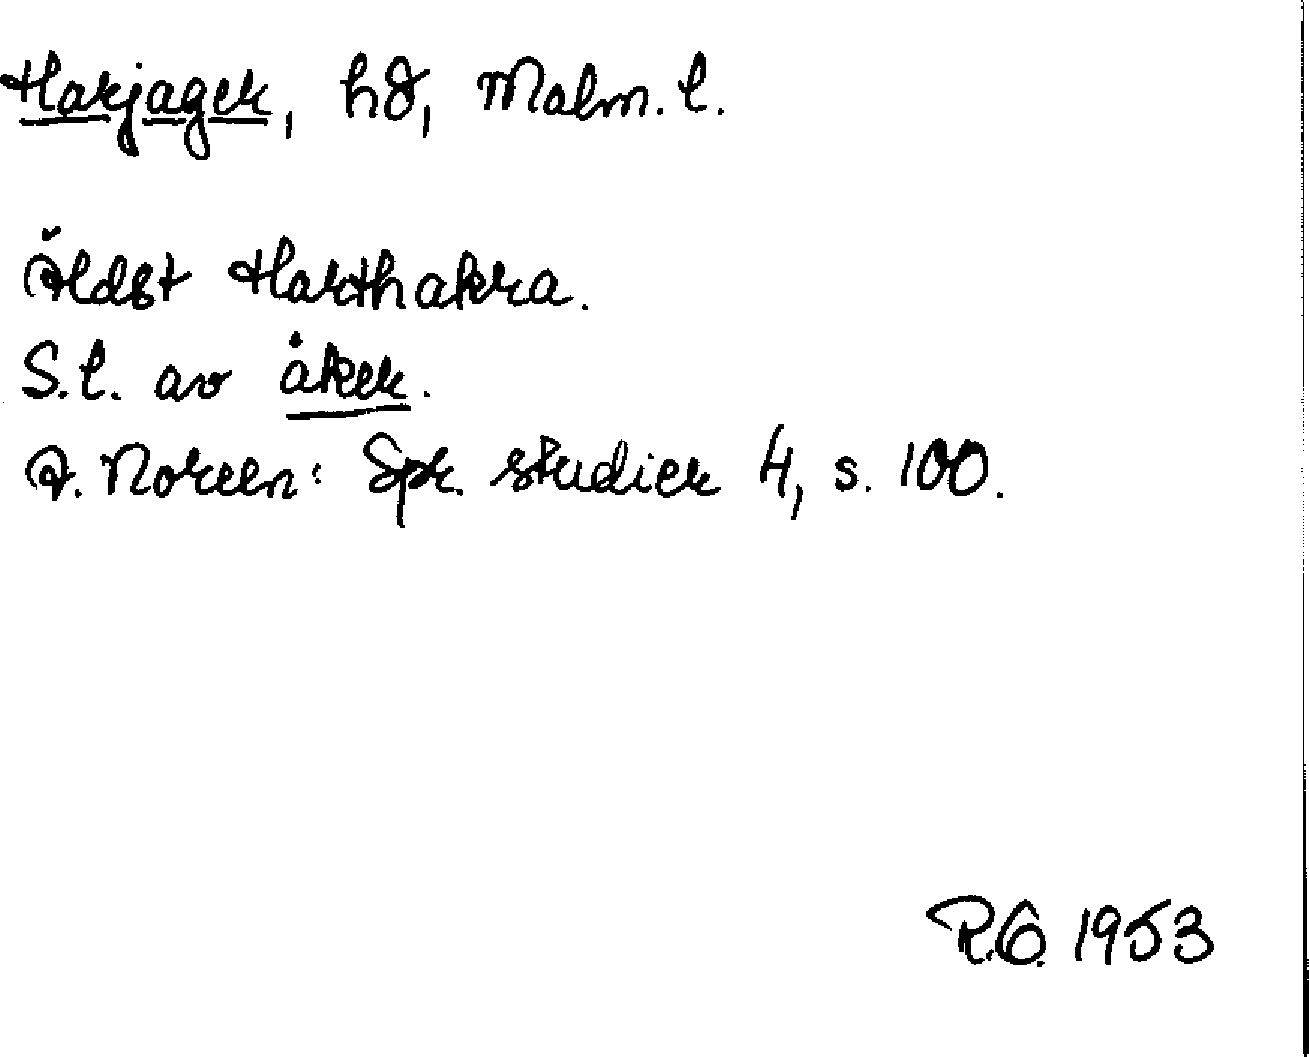 Harjager, hd, Malm. l.
Äldst Harthakra.
S.l. av åker.
A. Noreen: Spr. studier 4, s. 100.
R.O. 1953